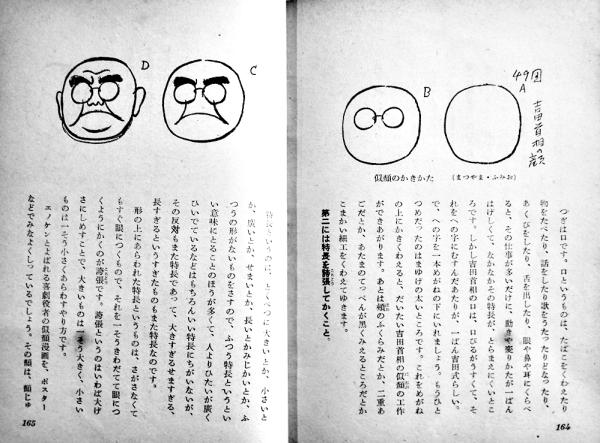 49図
A
吉田首相の顔
B
似顔のかきかた
(まつやま・ふみお)
つぎは口です。口というものは、たばこをくわえたり
物をたべたり、話をしたり歌をうたったりどなったり、
あくびをしたり、舌を出したり、眼や鼻や耳にくらべ
ると、その仕事が多いだけに、動きや變りかたが一ばん
はげしくて、なかなかその特長が、とらまえにくいとこ
ろです。しかし吉田首相の口は、口びるがうすくて、そ
れをへの字にむすんだあたりが、一ばん吉田式らしい。
で、への字を一本めがねの下にいれましょう。もうひと
つめだったのはまゆげの太いところです。これをめがね
の上にかきくわえると、だいたい吉田首相の似顔の工作
ができあがります。あとは頰のふくらみだとか、二重あ
ごだとか、あたまのてっぺんが黒くみえるところだとか
こまかい細工をくわえてゆきます。
第二には特長を誇張してかくこと。
164
C
D
特長というのは、とくべつに大きいとか、小さいと
か、広いとか、せまいとか、長いとかみじかいとか、ふ
つうの形がないものをさすので、ふつう特長というとい
い意味にとることのほうが多くて、人よりひたいが廣く
ひいでているなどはもちろんいい特長にちがいないが、
その反對もまた特長であって、大きすぎるせますぎる、
長すぎるというすぎたものもまた特長なのです。
形の上にあらわれた特長というものは、さがさなくて
もすぐ眼につくもので、それを一そうきわだてて眼につ
くようにかくのが誇張です。誇張というのはいわば大げ
さにしめすことで、大きいものは一そう大きく、小さい
ものは一そう小さくあらわすやり方です。
エノケンとよばれる喜劇役者の似顔漫画を、ポスター
などでみなよくしっているでしょう。その顔は、額じゅ
165